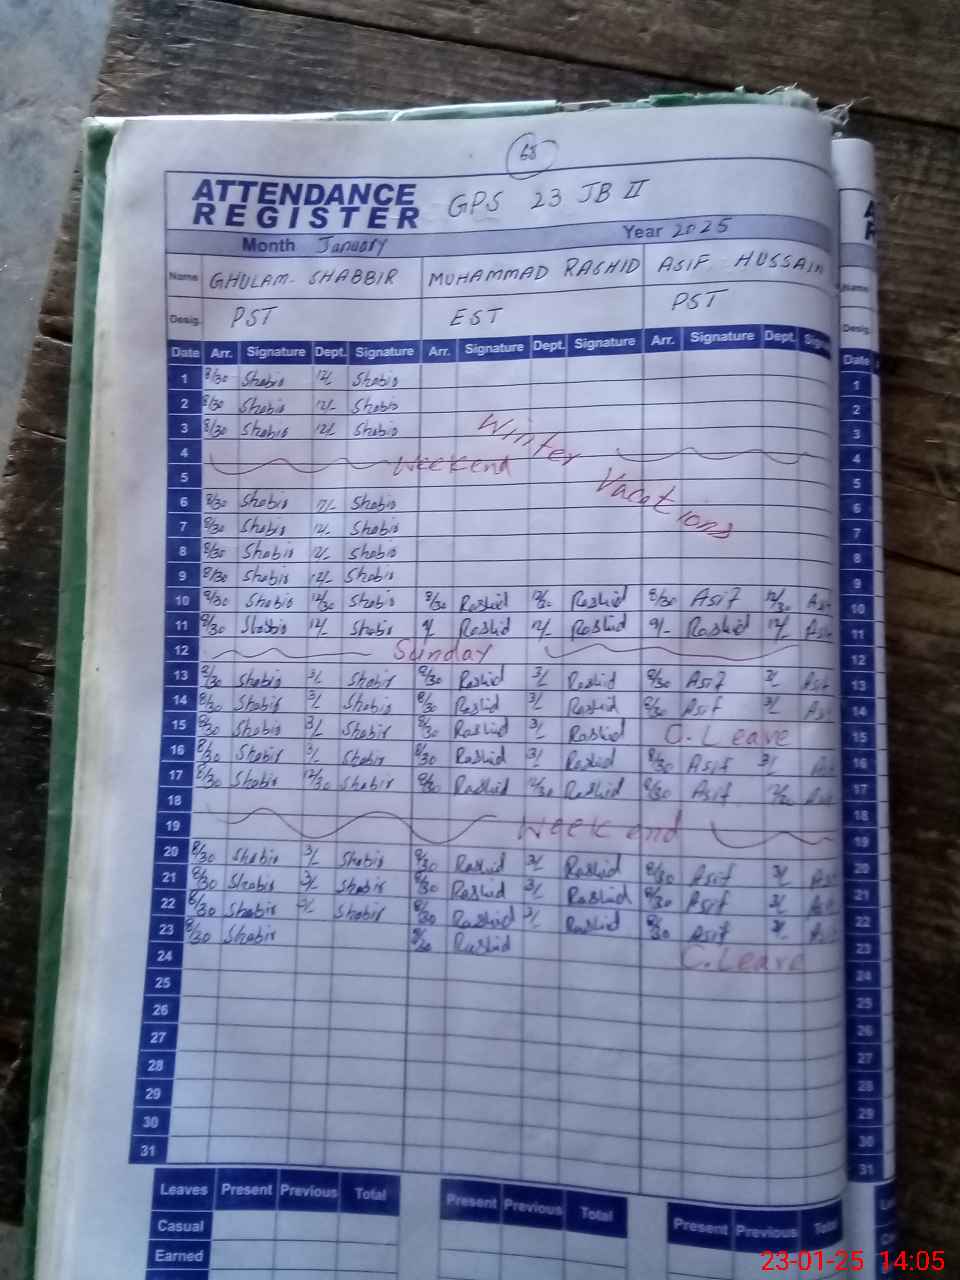 68
ATTENDANCE
REGISTER GPS 23 JB II
Month January Year 2025
Name GHULAM SHABBIR MUHAMMAD RASHID ASIF HUSSAIN
Desig. PST EST PST
Date Arr. Signature Dept. Signature Arr. Signature Dept. Signature Arr. Signature Dept. Date
1 8/30 Shabir 12/- Shabir 1
2 8/30 Shabir 12/- Shabir 2
3 8/30 Shabir 12/- Shabir Winter 3
4 Weekend 4
5 Vacations 5
6 8/30 Shabir 12/- Shabir 6
7 8/30 Shabir 12/- Shabir 7
8 8/30 Shabir 12/- Shabir
9 8/30 Shabir 12/- Shabir 9
10 8/30 Shabir 12/30 Shabir 8/30 Rashid 12/30 Rashid 8/30 Asif 12/30 10
11 8/30 Shabir 12/- Shabir 9/- Rashid 12/- Rashid 9/- Rashid 12/- 11
12 Sunday 12
13 8/30 Shabir 3/- Shabir 8/30 Rashid 3/- Rashid 8/30 Asif 3/- 13
14 8/30 Shabir 3/- Shabir 8/30 Rashid 3/- Rashid 8/30 Asif 3/- 14
15 8/30 Shabir 3/- Shabir 8/30 Rashid 3/- Rashid C. Leave 15
16 8/30 Shabir 3/- Shabir 8/30 Rashid 3/- Rashid 8/30 Asif 3/- 16
17 8/30 Shabir 12/30 Shabir 8/30 Rashid 12/30 Rashid 8/30 Asif 17
18 18
19 Week end 19
20 8/30 Shabir 3/- Shabir 8/30 Rashid 3/- Rashid 8/30 Asif 3/- 20
21 8/30 Shabir 3/- Shabir 8/30 Rashid 3/- Rashid 8/30 Asif 3/- 21
22 8/30 Shabir 3/- Shabir 8/30 Rashid 3/- Rashid 8/30 Asif 3/- 22
23 8/30 Shabir 8/30 Rashid C. Leave 23
24 24
25 25
26 26
27 27
28 28
29 29
30 30
31 31
Leaves Present Previous Total Present Previous Total Present Previous Total
Casual
Earned
23-01-25 14:05